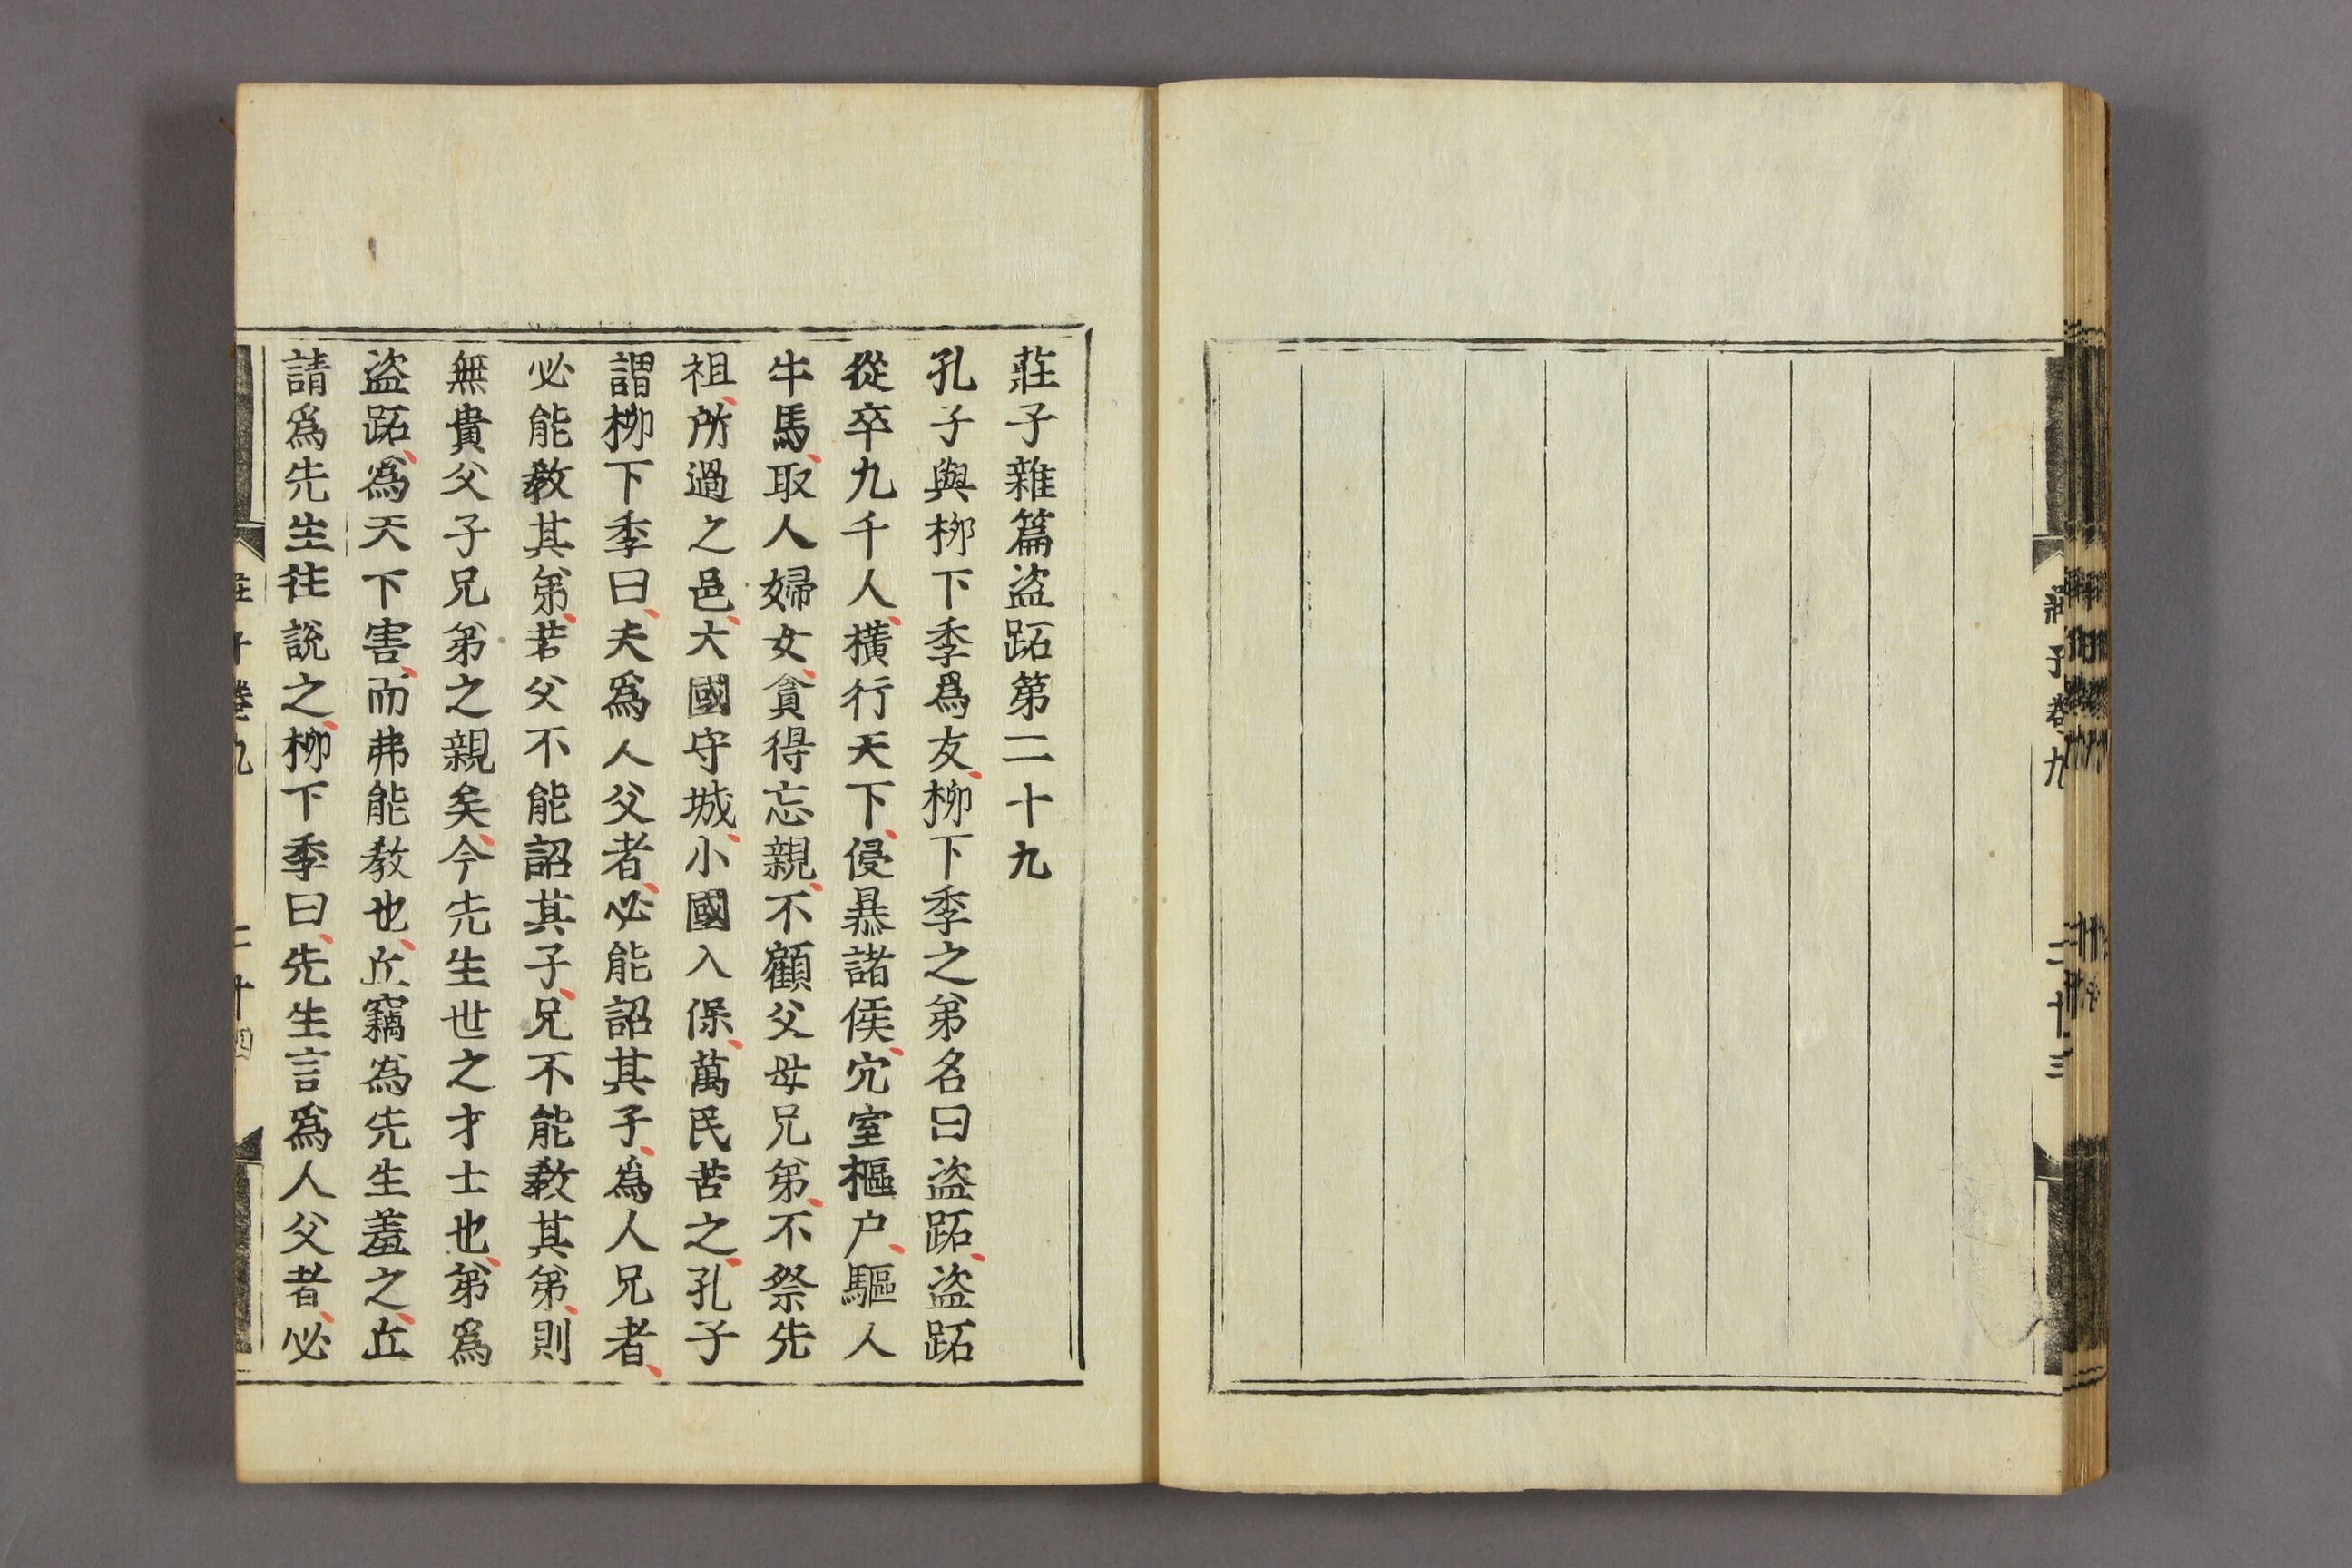 莊子卷九
二十三
莊子雜篇盜跖第二十九
孔子與栁下季爲友、栁下季之弟名曰盜跖、盜跖
從卒九千人、橫行天下、侵暴諸侯、宂室樞户、驅人
牛馬、取人婦女、貪得忘親、不顧父母兄弟、不祭先
祖、所過之邑、大國守城、小國入保、萬民苦之、孔子
謂栁下季曰、夫爲人父者、必能詔其子、爲人兄者、
必能敎其弟、若父不能詔其子、兄不能敎其弟、則
無貴父子兄弟之親矣、今先生世之才士也、弟爲
盜跖、爲天下害、而弗能敎也、丘竊爲先生羞之、丘
請爲先生往說之、栁下季曰、先生言爲人父者、必
莊子卷九
二十四